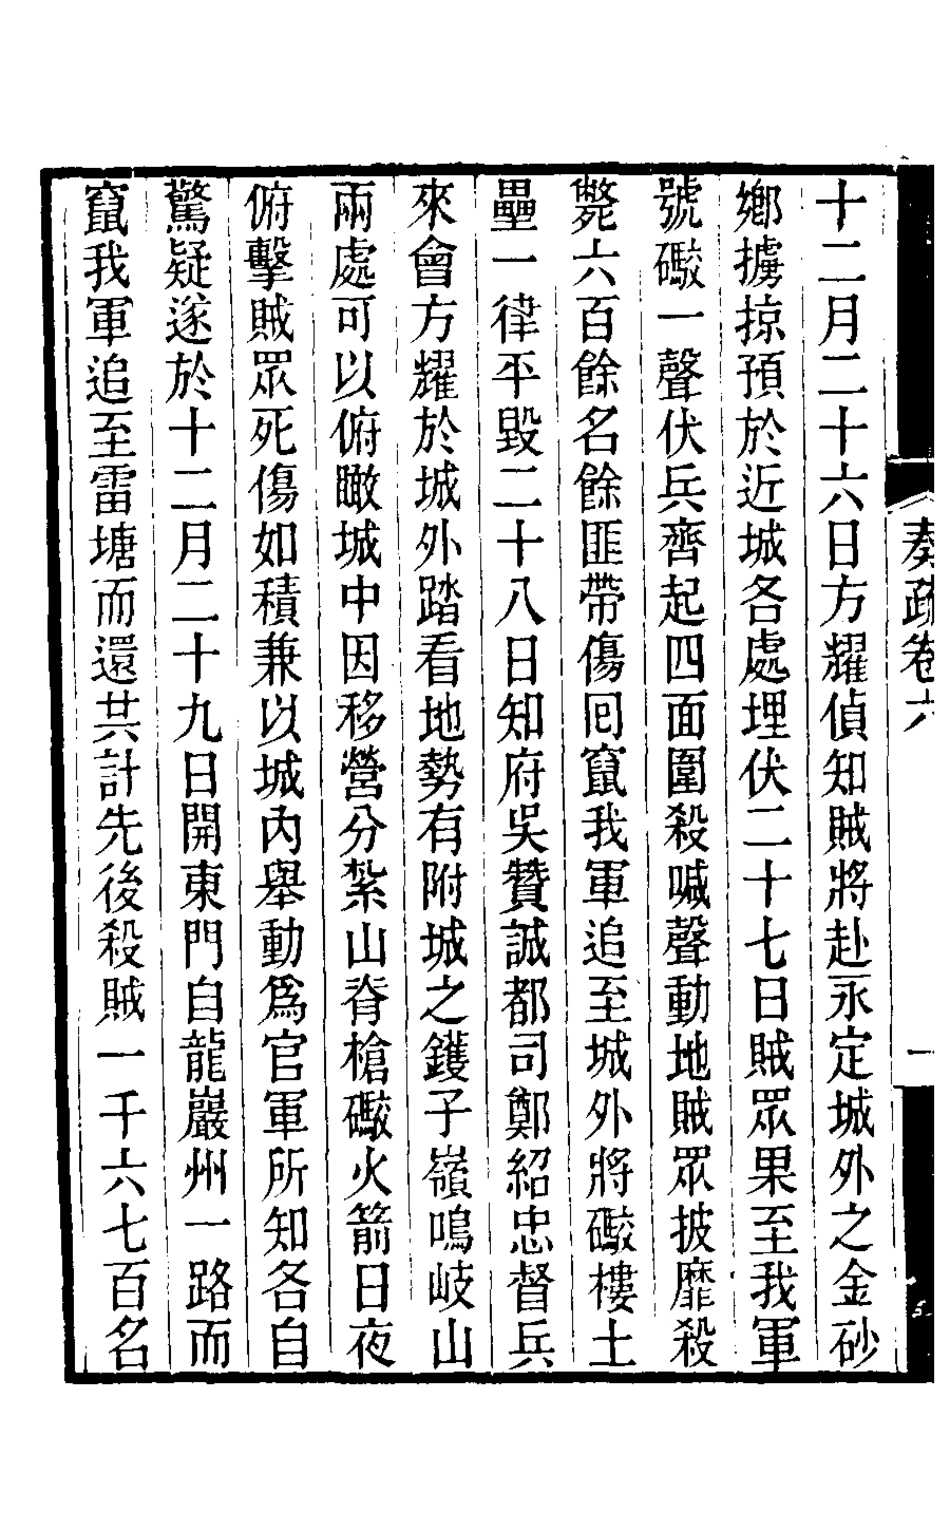 十二月二十六日方耀偵知賊將赴永定城外之金砂
鄉擄掠預於近城各處埋伏二十七日賊眾果至我軍
號礮一聲伏兵齊起四面圍殺喊聲動地賊眾披靡殺
斃六百餘名餘匪帶傷囘竄我軍追至城外將礮樓土
壘一律平毀二十八日知府吳贊誠都司鄭紹忠督兵
來會方耀於城外踏看地勢有附城之鑊子嶺鳴岐山
兩處可以俯瞰城中因移營分紮山脊槍礮火箭日夜
俯擊賊眾死傷如積兼以城內舉動爲官軍所知各自
驚疑遂於十二月二十九日開東門自龍巖州一路而
竄我軍追至雷塘而還共計先後殺賊一千六七百名
奏疏卷六 一